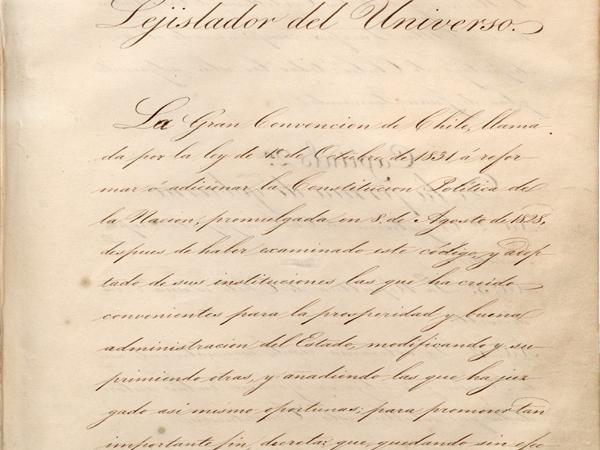 Lejislador del Universo.
La Gran Convencion de Chile, llama
da por la ley de 1º de Octubre de 1831 á refor-
mar ó adicionar la Constitucion Politica de
la Nacion, promulgada en 8 de Agosto de 1828,
despues de haber examinado este código, y adop
tado de sus instituciones las que ha creido
convenientes para la prosperidad y buena
administracion del Estado, modificando y su
primiendo otras, y anadiendo las que ha juz
gado asi mismo oportunas, para promover tan
importante fin, decreta: que, quedando sin efec